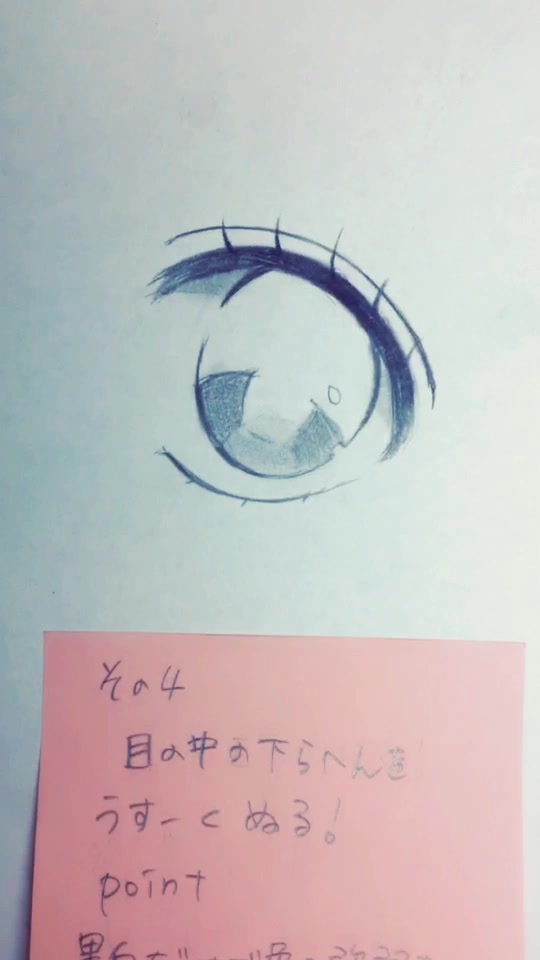 その4
目の中の下らへんを
うすーくぬる!
point